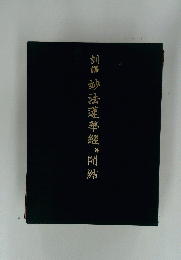 訓譯 妙法蓮華經 并 開結